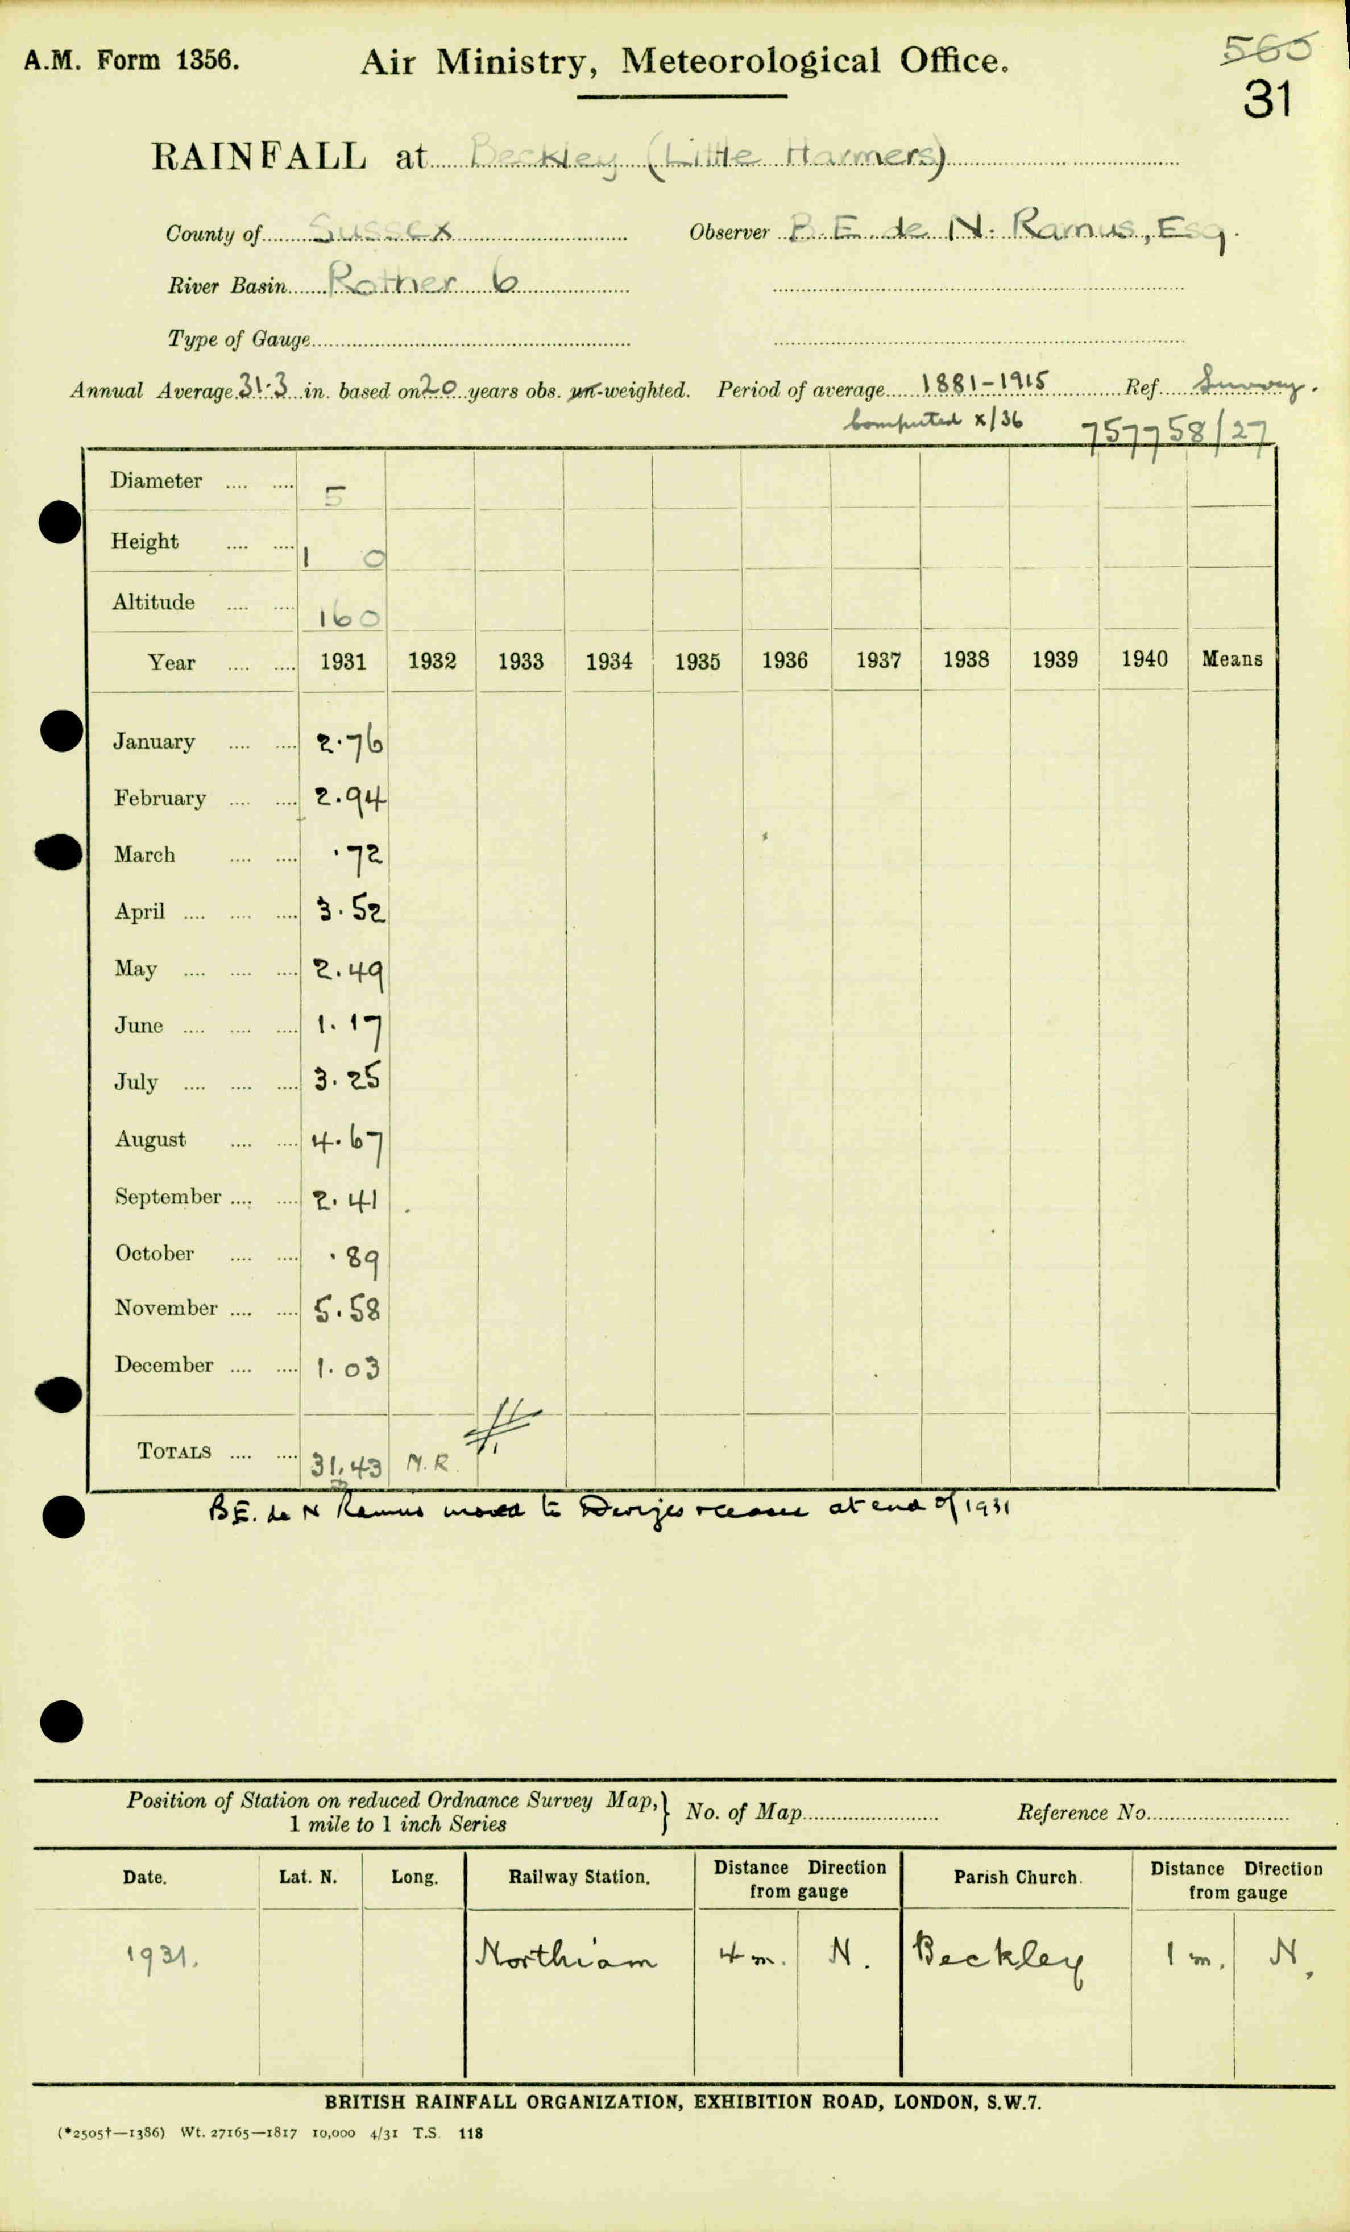 A.M. Form 1356. Air Ministry, Meteorological Office. 560
31
RAINFALL at Beckley (Little Harmers)
County of Sussex Observer B. E. de N. Ramus, Esq.
River Basin Rother 6
Type of Gauge
Annual Average 31.3 in. based on 20 years obs. un-weighted. Period of average 1881-1915 Ref. Survey.
Computed x/36 757758/27
Diameter .... .... 5
Height .... .... 1 0
Altitude .... .... 160
Year .... .... 1931 1932 1933 1934 1935 1936 1937 1938 1939 1940 Means
January .... .... 2.76
February .... .... 2.94
March .... .... .72
April .... .... .... 3.52
May .... .... .... 2.49
June .... .... .... 1.17
July .... .... .... 3.25
August .... .... 4.67
September .... .... 2.41
October .... .... .89
November .... .... 5.58
December .... .... 1.03
TOTALS .... .... 31.43 N.R.
B E. de N Ramus moved to Devizes at end of 1931
Position of Station on reduced Ordnance Survey Map, } No. of Map Reference No.
1 mile to 1 inch Series
Date. Lat. N. Long. Railway Station. Distance Direction from gauge Parish Church. Distance Direction from gauge
1931. Northiam 4 m. N. Beckley 1 m. N.
BRITISH RAINFALL ORGANIZATION, EXHIBITION ROAD, LONDON, S.W.7.
(*2505†—1386) Wt. 27165—1817 10,000 4/31 T.S. 118